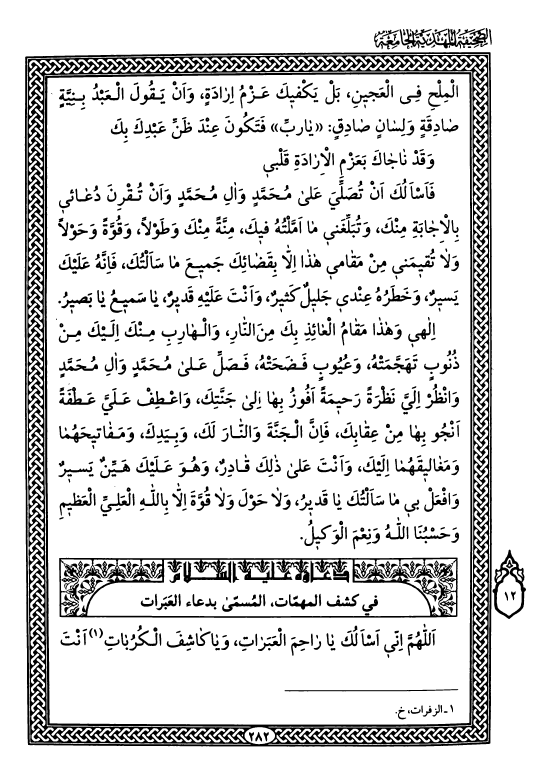 الصّحيفة المهديّة الجامعة
الْمِلْحِ فِى الْعَجينِ، بَلْ يَكْفيكَ عَزْمُ اِرادَةٍ، وَاَنْ يَقُولَ الْعَبْدُ بِنِيَّةٍ
صادِقَةٍ وَلِسانٍ صادِقٍ: «يارَبِّ» فَتَكُونَ عِنْدَ ظَنِّ عَبْدِكَ بِكَ
وَقَدْ ناجاكَ بَعَزْمِ الْاِرادَةِ قَلْبي
فَاَسْاَلُكَ اَنْ تُصَلِّيَ عَلىٰ مُحَمَّدٍ وَآلِ مُحَمَّدٍ وَاَنْ تُقْرِنَ دُعائي
بِالْاِجابَةِ مِنْكَ، وَتُبَلِّغَني ما اَمَّلْتُهُ فيكَ، مِنَّةً مِنْكَ وَطَوْلاً، وَقُوَّةً وَحَوْلاً
وَلا تُقيمَني مِنْ مَقامي هٰذا اِلّا بِقَضائِكَ جَميعَ ما سَاَلْتُكَ، فَاِنَّهُ عَلَيْكَ
يَسيرٌ، وَخَطَرُهُ عِنْدي جَليلٌ كَثيرٌ، وَاَنْتَ عَلَيْهِ قَديرٌ، يا سَميعُ يا بَصيرُ.
اِلٰهي وَهٰذا مَقامُ الْعائِذِ بِكَ مِنَ النّارِ، وَالْهارِبِ مِنْكَ اِلَيْكَ مِنْ
ذُنُوبٍ تَهَجَّمَتْهُ، وَعُيُوبٍ فَضَحَتْهُ، فَصَلِّ عَلىٰ مُحَمَّدٍ وَآلِ مُحَمَّدٍ
وَانْظُرْ اِلَيَّ نَظْرَةً رَحيمَةً اَفُوزُ بِها اِلىٰ جَنَّتِكَ، وَاعْطِفْ عَلَيَّ عَطْفَةً
اَنْجُو بِها مِنْ عِقابِكَ، فَاِنَّ الْجَنَّةَ وَالنّارَ لَكَ، وَبِيَدِكَ، وَمَفاتيحَهُما
وَمَغاليقَهُما اِلَيْكَ، وَاَنْتَ عَلىٰ ذٰلِكَ قادِرٌ، وَهُوَ عَلَيْكَ هَيِّنٌ يَسيرٌ
وَافْعَلْ بي ما سَاَلْتُكَ يا قَديرُ، وَلا حَوْلَ وَلا قُوَّةَ اِلّا بِاللهِ الْعَلِيِّ الْعَظيمِ
وَحَسْبُنَا اللهُ وَنِعْمَ الْوَكيلُ.
دعاؤه عليه السلام
في كشف المهمّات، المُسمّىٰ بدعاء العَبَرات
١٢
اَللّٰهُمَّ اِنّي اَسْاَلُكَ يا راحِمَ الْعَبَراتِ، وَيا كاشِفَ الْكُرُباتِ(١) اَنْتَ
١ ـ الزفرات، خ.
٢٨٢